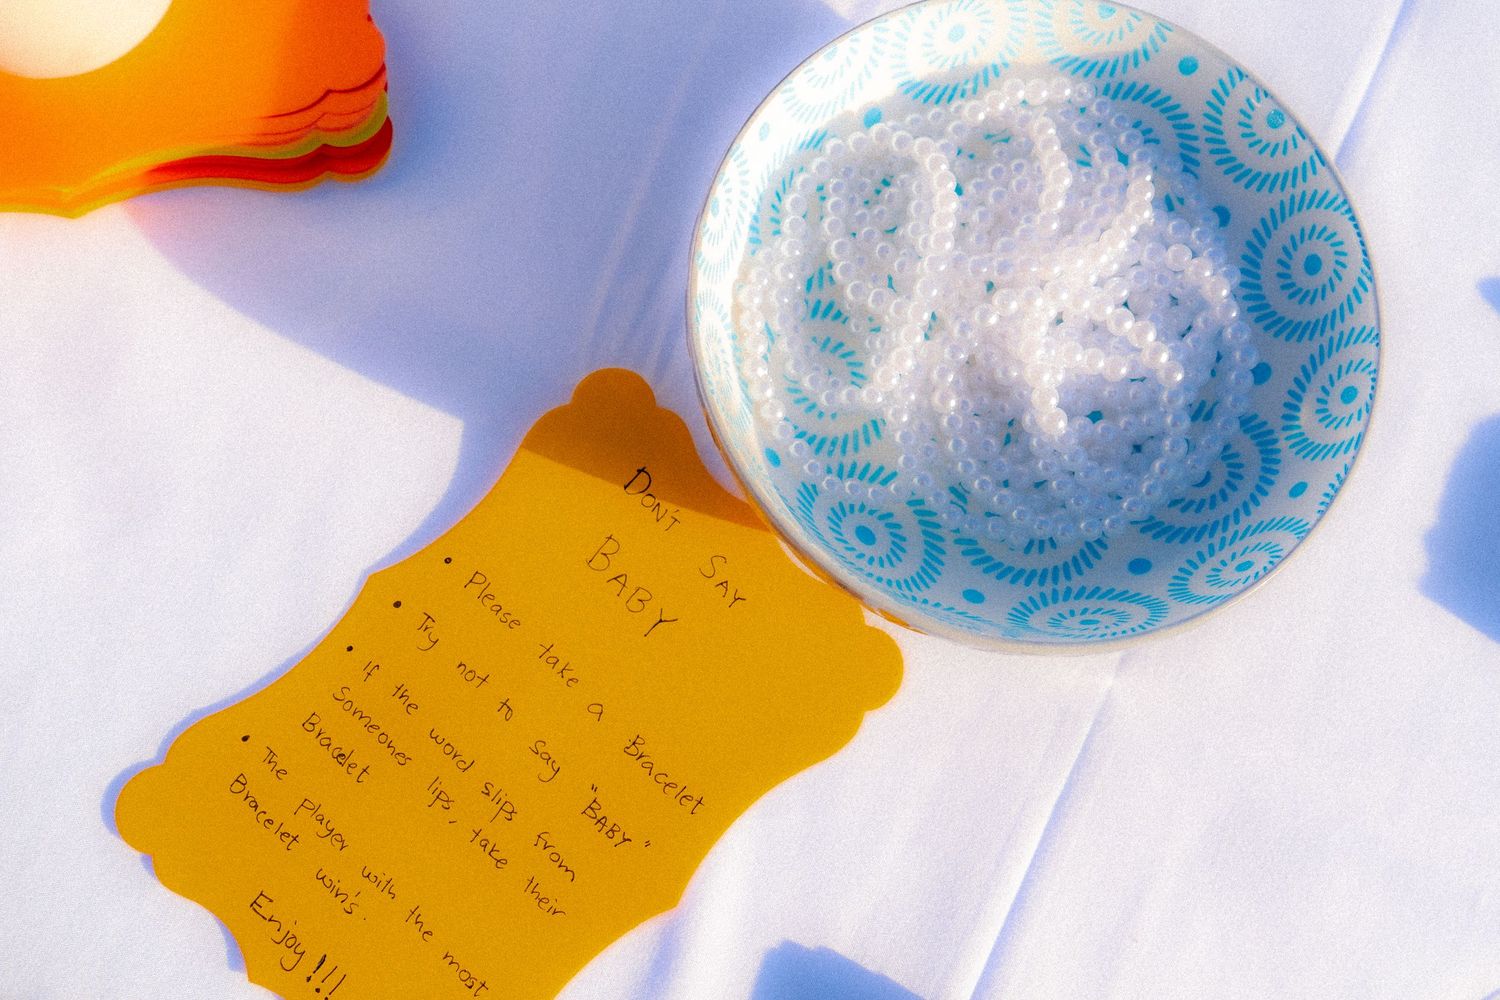 DON'T SAY
BABY
• Please take a Bracelet
• Try not to say "BABY"
• If the word slips from
Someones lips, take their
Bracelet
• The player with the most
Bracelet win's.
Enjoy!!!